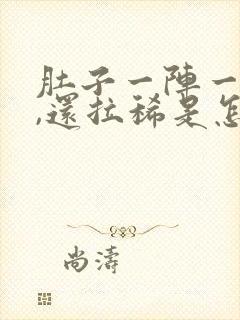 肚子一陣一
,還拉稀是怎
尚濤